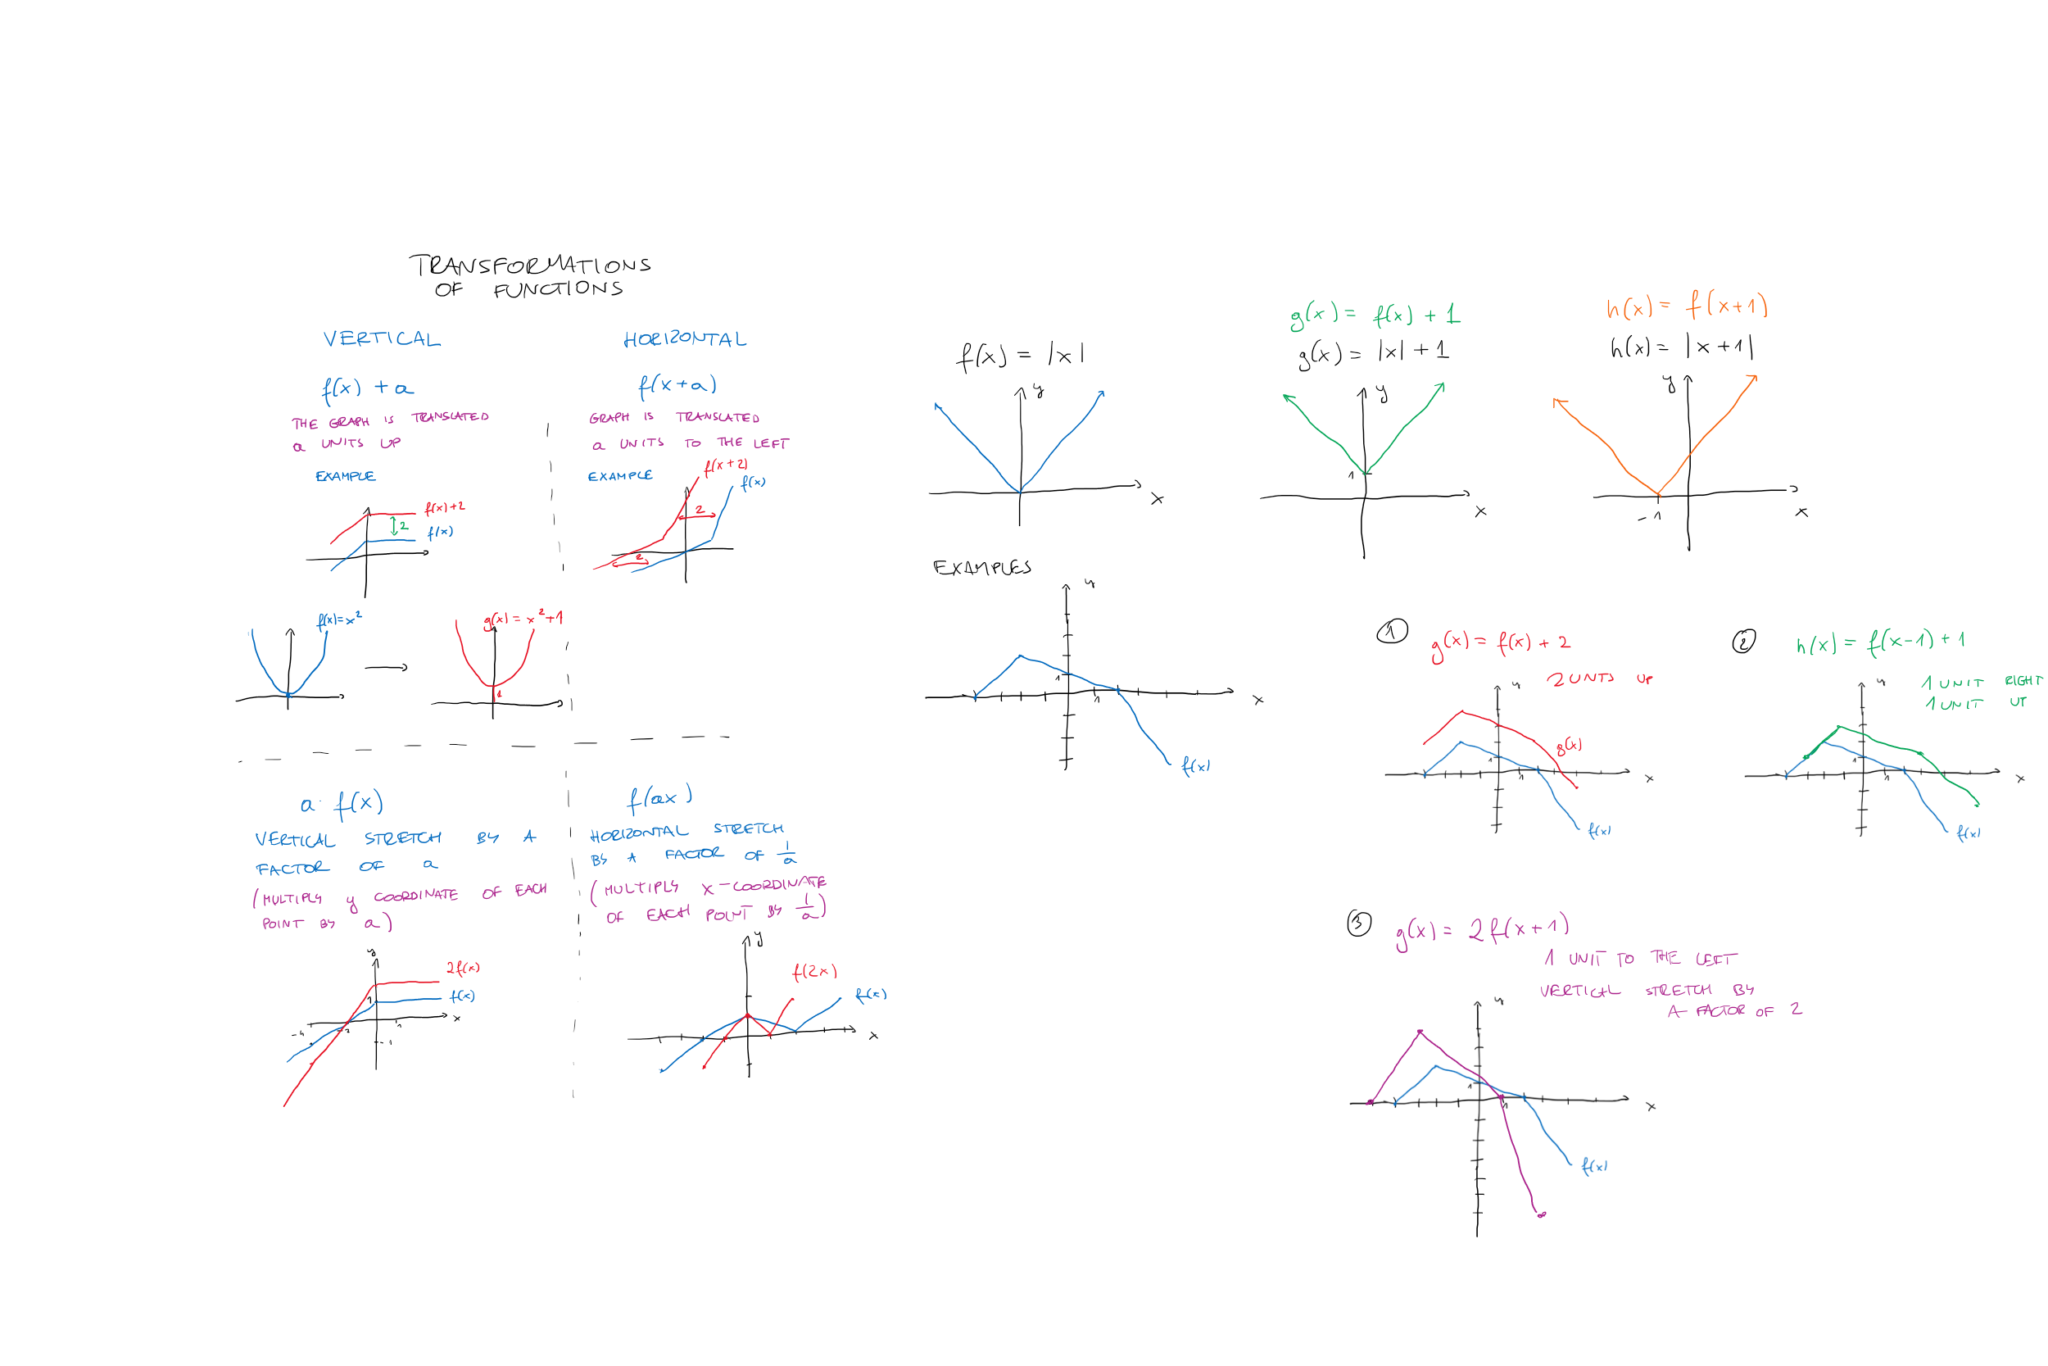 TRANSFORMATIONS
OF FUNCTIONS
VERTICAL
f(x) + a
THE GRAPH IS TRANSLATED
a UNITS UP
EXAMPLE
f(x)+2
2
f(x)
f(x)=x²
g(x) = x²+1
1
HORIZONTAL
f(x+a)
GRAPH IS TRANSLATED
a UNITS TO THE LEFT
EXAMPLE
f(x+2)
f(x)
2
2
a · f(x)
VERTICAL STRETCH BY A
FACTOR OF a
(MULTIPLY y COORDINATE OF EACH
POINT BY a)
y
2f(x)
f(x)
1
x
-1
f(ax)
HORIZONTAL STRETCH
BY A FACTOR OF 1/a
(MULTIPLY X-COORDINATE
OF EACH POINT BY 1/a)
y
f(2x)
f(x)
x
f(x) = |x|
y
x
g(x) = f(x) + 1
g(x) = |x| + 1
y
1
x
h(x) = f(x+1)
h(x) = |x+1|
y
-1
x
EXAMPLES
y
1
1
x
f(x)
1
g(x) = f(x) + 2
2 UNTS UP
y
g(x)
1
1
x
f(x)
2
h(x) = f(x-1) + 1
1 UNIT RIGHT
1 UNIT UP
y
1
1
x
f(x)
3
g(x) = 2f(x+1)
1 UNIT TO THE LEFT
VERTICAL STRETCH BY
A FACTOR OF 2
y
1
1
x
f(x)